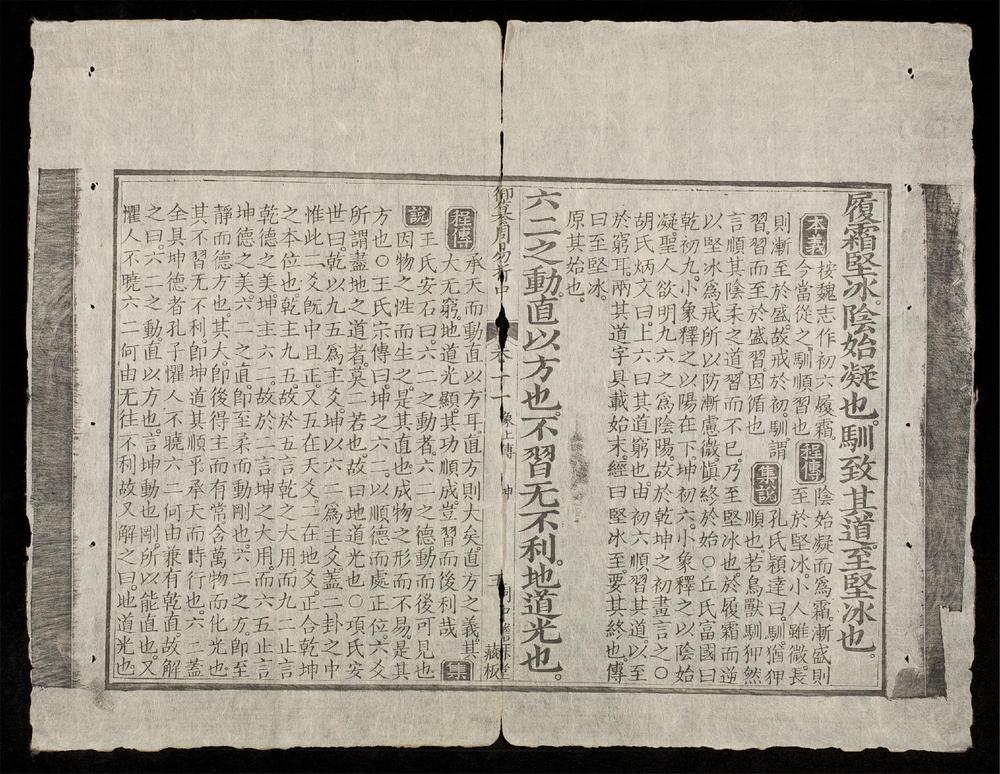 履霜堅冰陰始凝也。馴致其道。至堅冰也。
本義 按魏志作初六履霜
今當從之。馴順習也。 程傳 陰始凝而爲霜。漸盛則
則漸至於盛。故戒於初。馴謂 至於堅冰。小人雖微。長
習。習而至於盛。習。因循也 集說 孔氏穎達曰。馴猶狎
言順其陰柔之道。習而不已。乃至堅冰也。於履霜而逆 順也。若鳥獸馴狎然
以堅冰爲戒。所以防漸慮微。慎終於始。○丘氏富國曰
乾初九。小象釋之以陽在下。坤初六。小象釋之以陰始
凝。聖人欲明九六之爲陰陽。故於乾坤之初畫言之。○
胡氏炳文曰。上六曰其道窮也。由初六順習其道。以至
於窮耳。兩其道字具載始末。經曰堅冰至。要其終也。傳
曰至堅冰。
原其始也。
六二之動。直以方也。不習无不利。地道光也。
御纂周易折中
卷十一
象上傳 坤
藏板
程傳 承天而動。直以方耳。直方則大矣。直方之義。其
大无窮。地道光顯。其功順成。豈習而後利哉 集
說 王氏安石曰。六二之動者。六二之德動而後可見也
因物之性而生之。是其直也。成物之形而不易。是其
方也。○王氏宗傳曰。坤之六二。以順德而處正位。六爻
所謂盡地之道者。莫二若也。故曰地道光也。○項氏安
世曰。乾以九五爲主爻。坤以六二爲主爻。蓋二卦之中
惟此二爻。旣中且正。又五在天爻。二在地爻。正合乾坤
之本位也。乾主九五。故於五言乾之大用。而九二止言
乾德之美。坤主六二。故於二言坤之大用。而六五止言
坤德之美。六二之直。卽至柔而動剛也。六二之方。卽至
靜而德方也。其大。卽後得主而有常。含萬物而化光也
其不習无不利。卽坤道其順乎。承天而時行也。六二蓋
全具坤德者。孔子懼人不曉六二何由兼有乾直。故解
之曰。六二之動。直以方也。言坤動也剛。所以能直也。又
懼人不曉六二何由无往不利。故又解之曰。地道光也